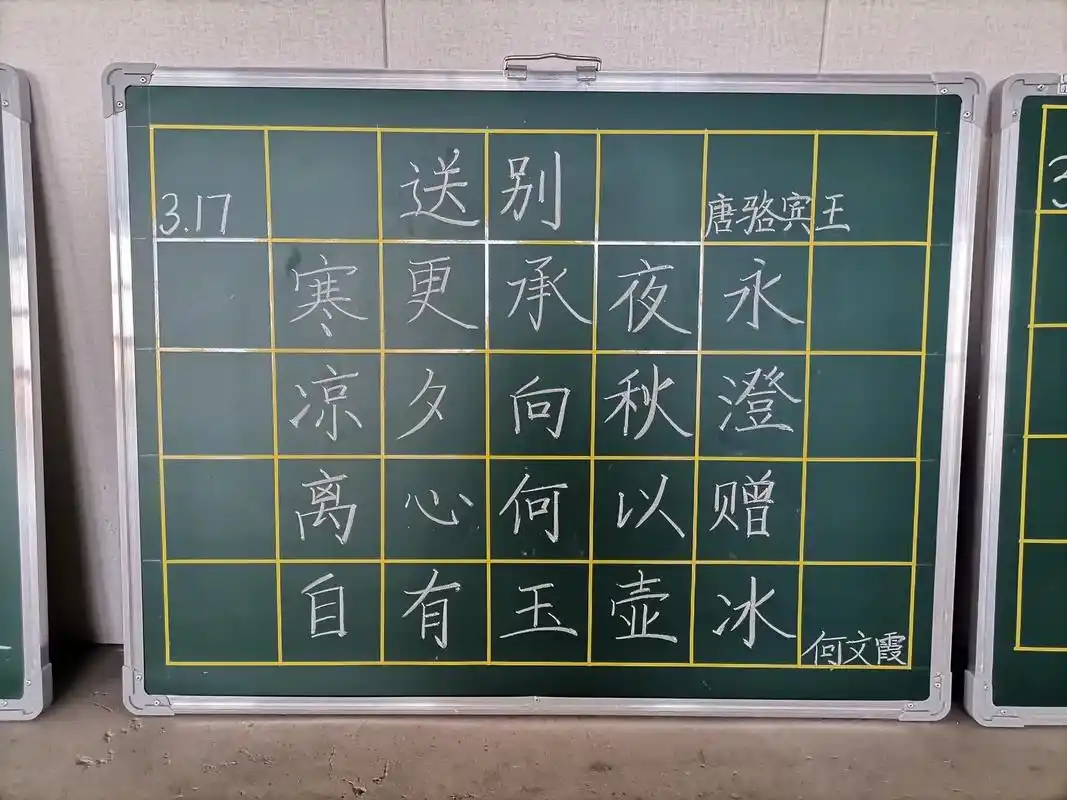 3.17 送别 唐骆宾王
寒更承夜永
凉夕向秋澄
离心何以赠
自有玉壶冰
何文霞
3